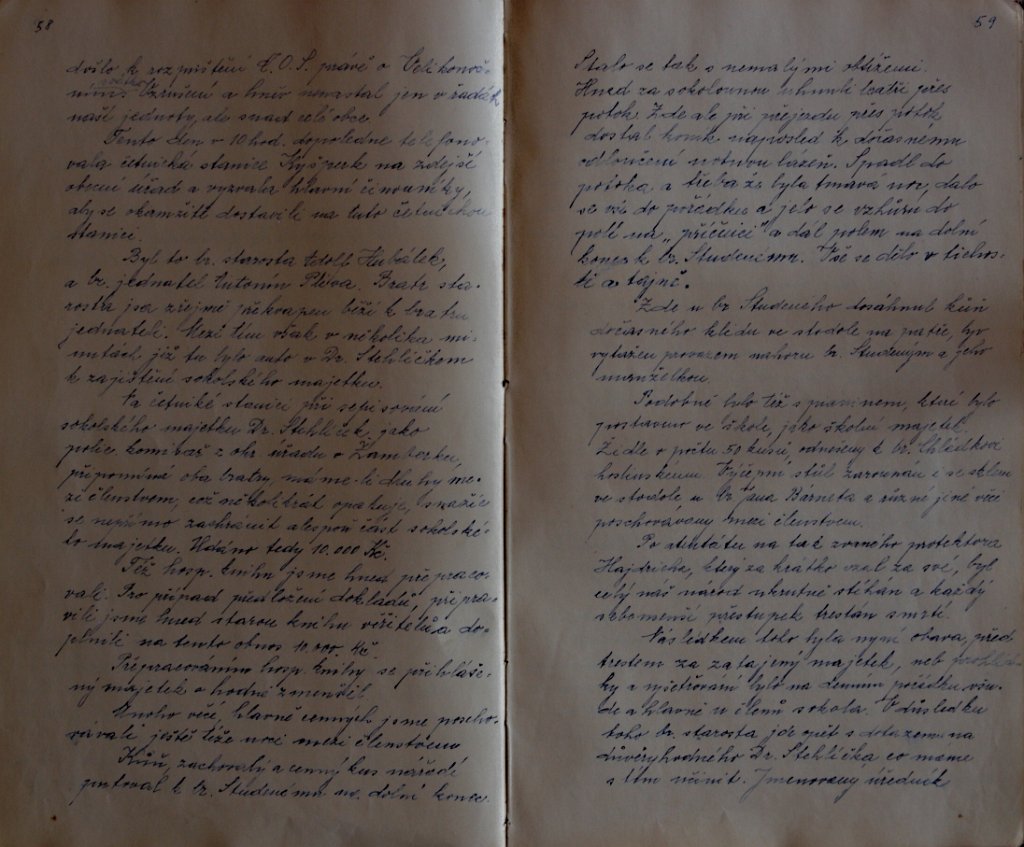 58
došlo k rozpuštění Č.O.S. právě o Velikonoč-
ními svátky
Vzrušení a hněv nenastal jen v řadách
naší jednoty, ale snad celé obce.
Tento den v 10 hod. dopoledne telefono-
vala četnická stanice Kyšperk na zdejší
obecní úřad a vyzvala hlavní činovníky,
aby se okamžitě dostavili na tuto četnickou
stanici.
Byl to br. starosta Adolf Hubálek,
a br. jednatel Antonín Plíva. Bratr sta-
rosta jsa zřejmě překvapen běží k bratru
jednateli. Mezi tím však v několika mi-
nutách již tu bylo auto s Dr. Stehlíčkem
k zajištění sokolského majetku.
Na četnické stanici při sepisování
sokolského majetku Dr. Stehlíček, jako
polic. komisař z okr. úřadu v Žamberku,
připomíná oba bratry, máme-li dluhy me-
zi členstvem, což několikrát opakuje, snažíc
se nepřímo zachránit alespoň část sokolské-
ho majetku. Udáno tedy 10.000 Kč.
Též hosp. knihu jsme hned přepraco-
vali. Pro případ předložení dokladů, připra-
vili jsme hned starou knihu věřitelů a do-
plnili na tento obnos 10.000 Kč.
Přepracováním hosp. knihy se přihláše-
ný majetek o hodně zmenšil.
Mnoho věcí, hlavně cenných jsme poscho-
vávali ještě téže noci mezi členstvem
Kůň, zachovalý a cenný kus nářadí
putoval k br. Studenému na dolní konec.
59
Stalo se tak s nemalými obtížemi.
Hned za sokolovnou uhnuli bratři přes
potok. Zde ale při přejezdu přes potok
dostal koník naposled k dočasnému
odloučení nutnou lazeň. Spadl do
potoka a třeba že byla tmavá noc, dalo
se vše do pořádku a jelo se vzhůru do
polí na „příčnici" a dál polem na dolní
konec k br. Studenému. Vše se dělo v tichos-
ti a tajně.
Zde u br. Studeného dosáhnul kůň
dočasného klidu ve stodole na patře, byv
vytažen provazem nahoru br. Studeným a jeho
manželkou.
Podobně bylo též s pianinem, které bylo
postaveno ve škole, jako školní majetek.
Židle v počtu 50 kusů, odnošeny k br. Chládkovi
hostinskému. Výčepní stůl zarovnán i se sklem
ve stodole u br. Jana Bárneta a různé jiné věci
poschovávány mezi členstvem.
Po atentátu na tak zvaného protektora
Hajdricha, který za krátko vzal za své, byl
celý náš národ ukrutně stíhán a každý
sebemenší přestupek trestán smrtí.
Následkem toho byla nyní obava před
trestem za zatajený majetek, neb prohlíd-
ky a vyšetřování bylo na denním pořádku všu-
de a hlavně u členů sokola. V důsledku
toho br. starosta jde opět s dotazem na
důvěryhodného Dr. Stehlíčka co máme
s tím učinit. Jmenovaný úředník